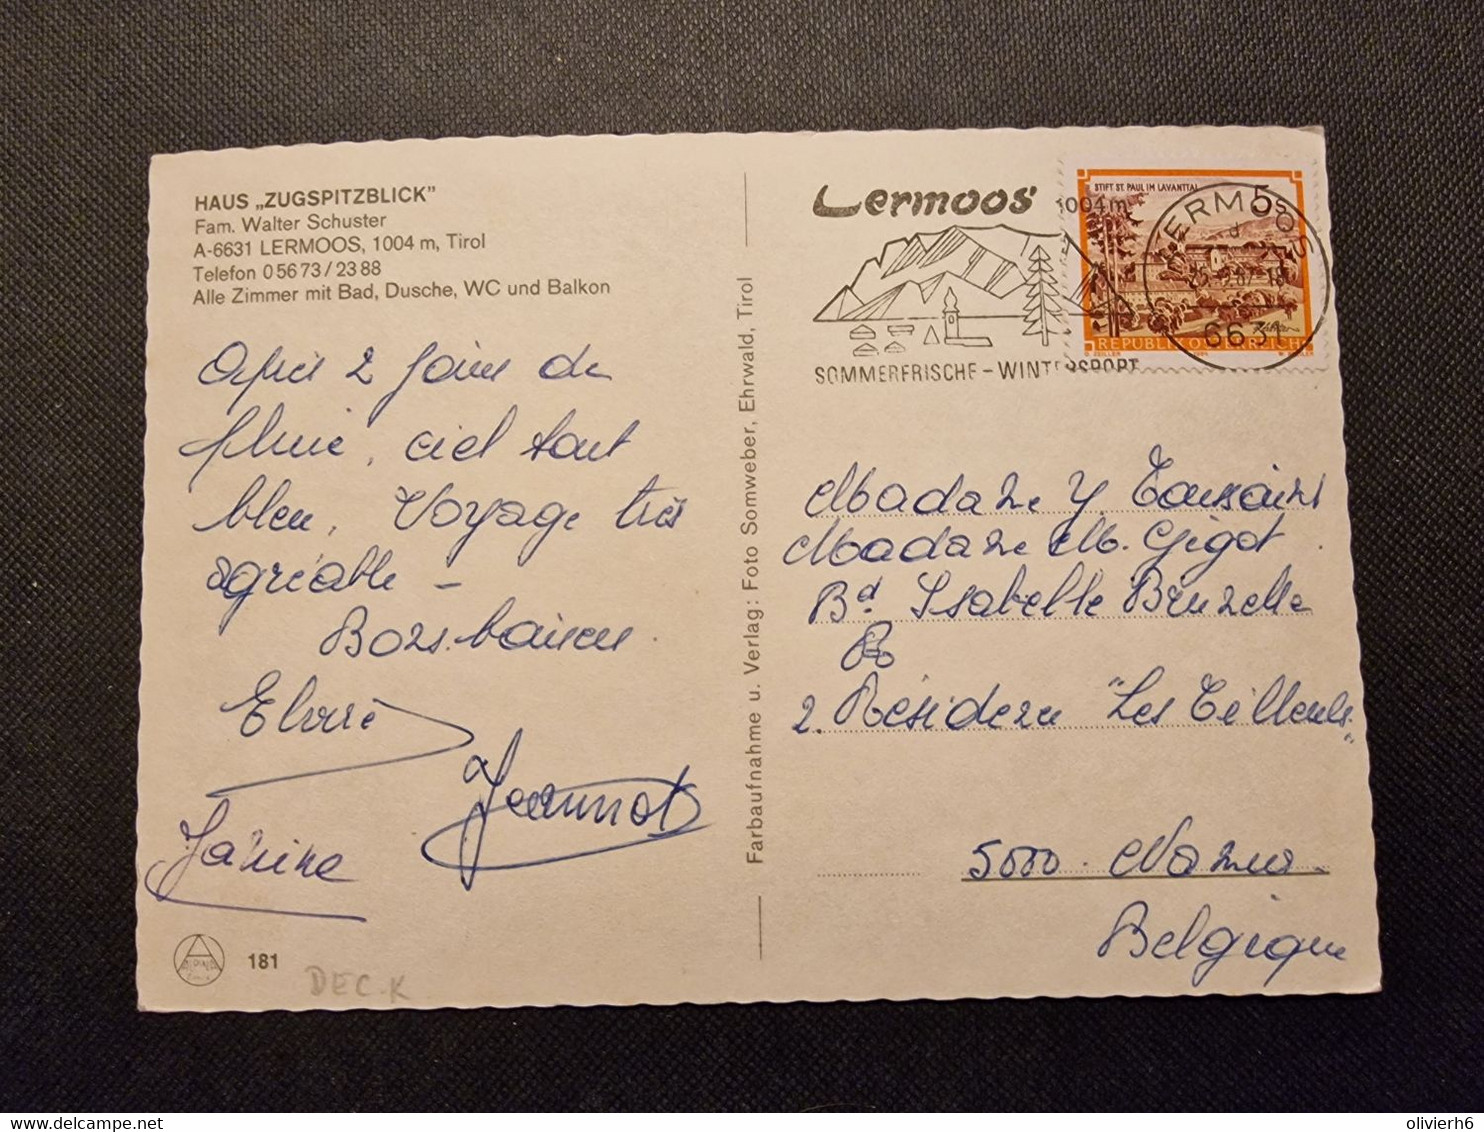 HAUS „ZUGSPITZBLICK"
Fam. Walter Schuster
A-6631 LERMOOS, 1004 m, Tirol
Telefon 0 56 73 / 23 88
Alle Zimmer mit Bad, Dusche, WC und Balkon
Après 2 jours de
pluie, ciel tout
bleu, Voyage très
agréable -
Bons baisers
Jeannot
Janine
181
DEC.K
Farbaufnahme u. Verlag: Foto Somweber, Ehrwald, Tirol
Lermoos
1004 m
SOMMERFRISCHE - WINTERSPORT
STIFT ST. PAUL IM LAVANTTAL
5s
REPUBLIK ÖSTERREICH
LERMOOS
6631
Madame Y Toussaint
Madame M. Gigot
Bd Isabelle Brunelle
2. Résidence "Les Tilleuls"
5000 Namur
Belgique
olivierh6